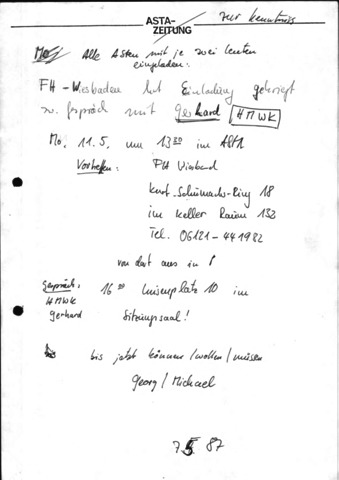 ASTA-
ZEITUNG
zur Kenntnis
Alle Asten mit je zwei Leuten
eingeladen:
FH-Wiesbaden hat Einladung gekriegt
zu Gespräch mit Gerhard HMWK
Mo, 11.5. um 13³⁰ im AStA
Vortreffen: FH Wiesbad
Kurt-Schumacher-Ring 18
im Keller Raum 132
Tel. 06121-441982
von dort aus in
Gespräch: 16⁰⁰ Luisenplatz 10 im
HMWK
Gerhard Sitzungssaal!
bis jetzt können/wollen/müssen
Georg/Michael
7.5.87